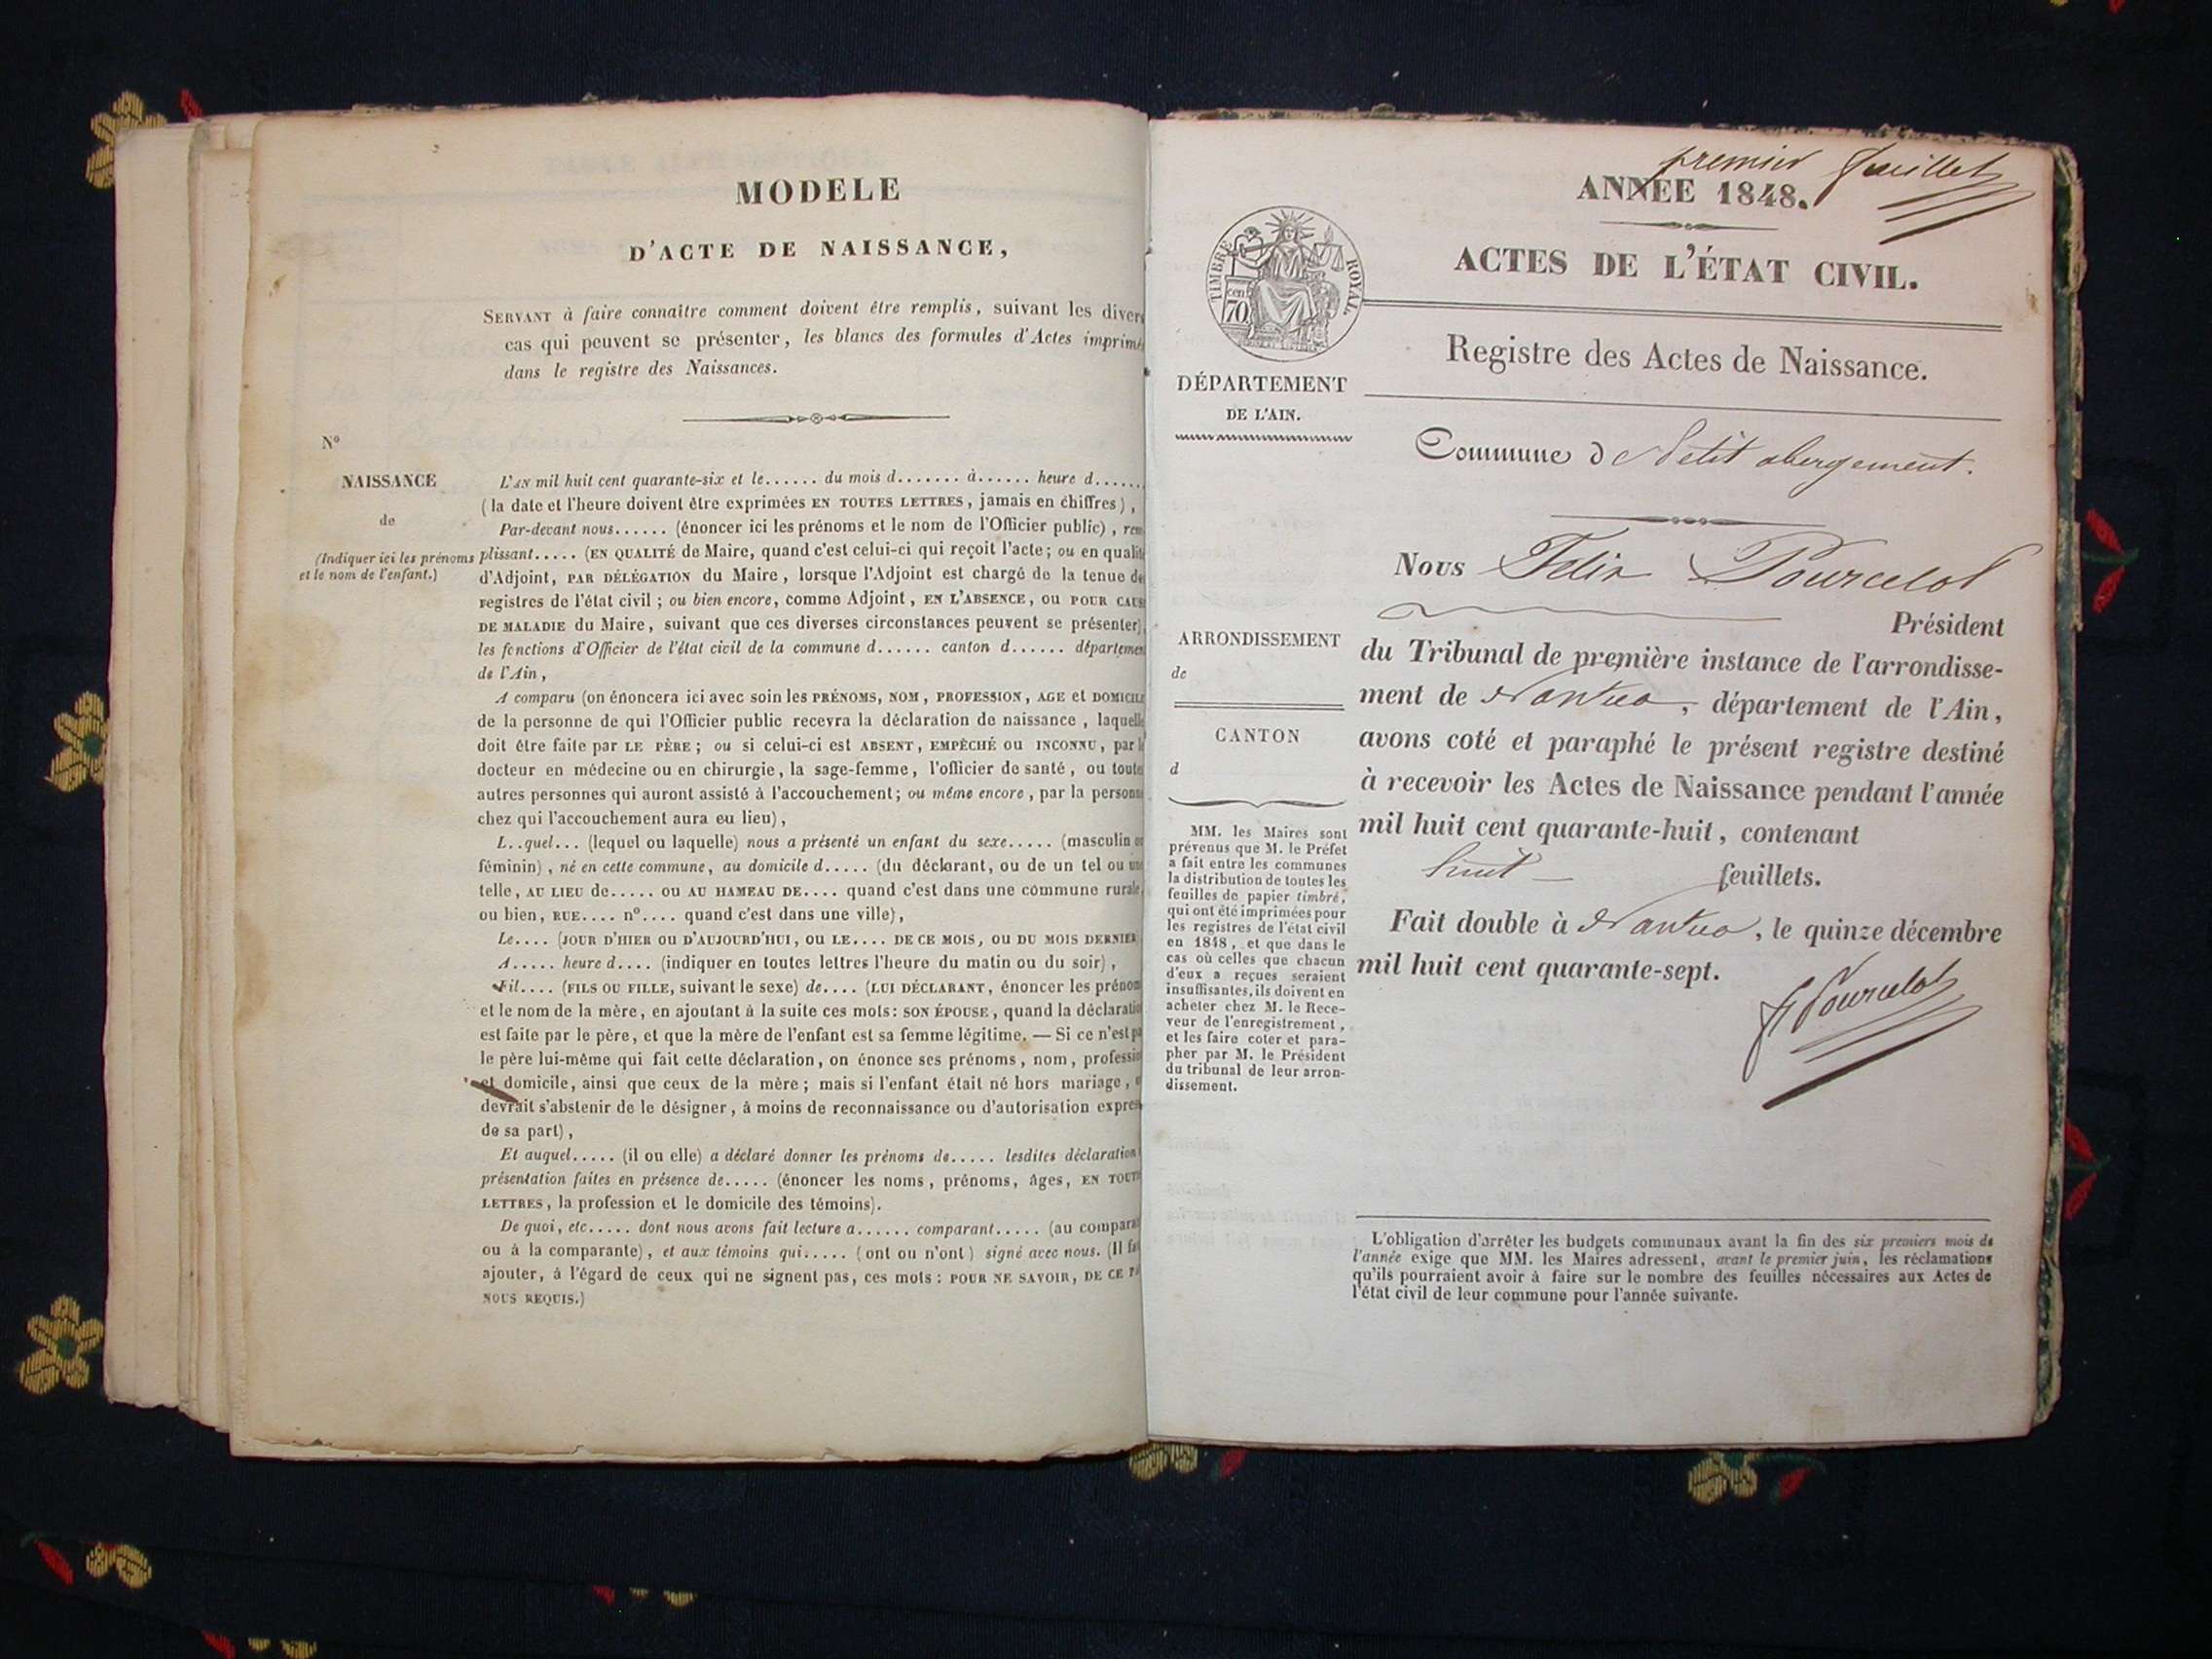 MODELE
D'ACTE DE NAISSANCE,
SERVANT à faire connaître comment doivent être remplis, suivant les divers
cas qui peuvent se présenter, les blancs des formules d'Actes imprimés
dans le registre des Naissances.
N°
NAISSANCE
de
(Indiquer ici les prénoms
et le nom de l'enfant.)
L'AN mil huit cent quarante-six et le...... du mois d....... à...... heure d......
(la date et l'heure doivent être exprimées EN TOUTES LETTRES, jamais en chiffres),
Par-devant nous...... (énoncer ici les prénoms et le nom de l'Officier public), rem
plissant..... (EN QUALITÉ de Maire, quand c'est celui-ci qui reçoit l'acte; ou en qualité
d'Adjoint, PAR DÉLÉGATION du Maire, lorsque l'Adjoint est chargé de la tenue de
registres de l'état civil; ou bien encore, comme Adjoint, EN L'ABSENCE, OU POUR CAUSE
DE MALADIE du Maire, suivant que ces diverses circonstances peuvent se présenter),
les fonctions d'Officier de l'état civil de la commune d...... canton d...... département
de l'Ain,
A comparu (on énoncera ici avec soin les PRÉNOMS, NOM, PROFESSION, AGE et DOMICILE
de la personne de qui l'Officier public recevra la déclaration de naissance, laquelle
doit être faite par LE PÈRE; ou si celui-ci est ABSENT, EMPÊCHÉ ou INCONNU, par le
docteur en médecine ou en chirurgie, la sage-femme, l'officier de santé, ou toute
autres personnes qui auront assisté à l'accouchement; ou même encore, par la personne
chez qui l'accouchement aura eu lieu),
L..quel... (lequel ou laquelle) nous a présenté un enfant du sexe..... (masculin ou
féminin), né en cette commune, au domicile d..... (du déclarant, ou de un tel ou une
telle, AU LIEU de..... ou AU HAMEAU DE.... quand c'est dans une commune rurale
ou bien, RUE.... n°.... quand c'est dans une ville),
Le.... (JOUR D'HIER OU D'AUJOURD'HUI, OU LE.... DE CE MOIS, OU DU MOIS DERNIER
A..... heure d.... (indiquer en toutes lettres l'heure du matin ou du soir),
Fil.... (FILS OU FILLE, suivant le sexe) de.... (LUI DÉCLARANT, énoncer les prénom
et le nom de la mère, en ajoutant à la suite ces mots: SON ÉPOUSE, quand la déclaratio
est faite par le père, et que la mère de l'enfant est sa femme légitime. — Si ce n'est pa
le père lui-même qui fait cette déclaration, on énonce ses prénoms, nom, professio
et domicile, ainsi que ceux de la mère; mais si l'enfant était né hors mariage,
devrait s'abstenir de le désigner, à moins de reconnaissance ou d'autorisation expres
de sa part),
Et auquel..... (il ou elle) a déclaré donner les prénoms de..... lesdites déclaration
présentation faites en présence de..... (énoncer les noms, prénoms, âges, EN TOUT
LETTRES, la profession et le domicile des témoins).
De quoi, etc..... dont nous avons fait lecture a...... comparant..... (au compara
ou à la comparante), et aux témoins qui..... (ont ou n'ont) signé avec nous. (Il fa
ajouter, à l'égard de ceux qui ne signent pas, ces mots: POUR NE SAVOIR, DE CE
NOUS REQUIS.)
premier feuillet
ANNÉE 1848.
ACTES DE L'ÉTAT CIVIL.
TIMBRE ROYAL
cen
70
Registre des Actes de Naissance.
DÉPARTEMENT
DE L'AIN.
Commune d Petit abergement.
Nous Félix Pourcelot
Président
du Tribunal de première instance de l'arrondisse-
ment de Nantua, département de l'Ain,
avons coté et paraphé le présent registre destiné
à recevoir les Actes de Naissance pendant l'année
mil huit cent quarante-huit, contenant
huit feuillets.
Fait double à Nantua, le quinze décembre
mil huit cent quarante-sept.
F Pourcelot
ARRONDISSEMENT
de
CANTON
d
MM. les Maires sont
prévenus que M. le Préfet
a fait entre les communes
la distribution de toutes les
feuilles de papier timbré,
qui ont été imprimées pour
les registres de l'état civil
en 1848, et que dans le
cas où celles que chacun
d'eux a reçues seraient
insuffisantes, ils doivent en
acheter chez M. le Rece-
veur de l'enregistrement,
et les faire coter et para-
pher par M. le Président
du tribunal de leur arron-
dissement.
L'obligation d'arrêter les budgets communaux avant la fin des six premiers mois de
l'année exige que MM. les Maires adressent, avant le premier juin, les réclamations
qu'ils pourraient avoir à faire sur le nombre des feuilles nécessaires aux Actes de
l'état civil de leur commune pour l'année suivante.